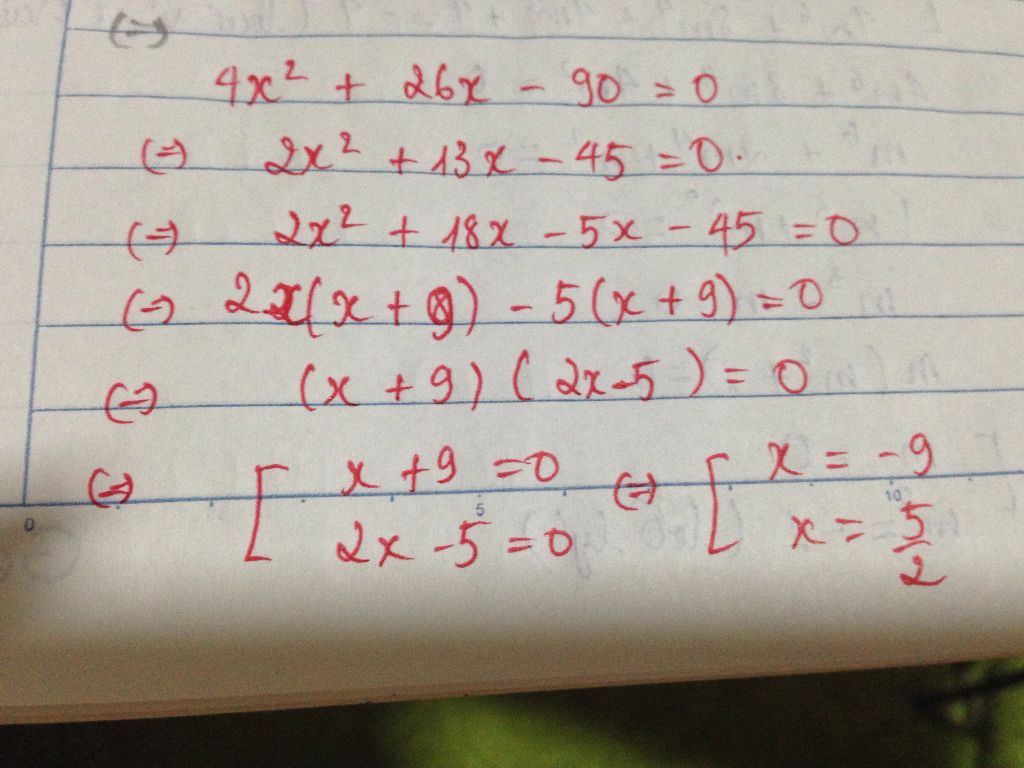 (=)
4x² + 26x - 90 = 0
(=) 2x² + 13x - 45 = 0.
(=) 2x² + 18x - 5x - 45 = 0
(=) 2x(x + 9) - 5(x + 9) = 0
(=) (x + 9) (2x-5) = 0
(=) [ x + 9 = 0 (=) [ x = -9
2x - 5 = 0 x = 5/2
0 5 10